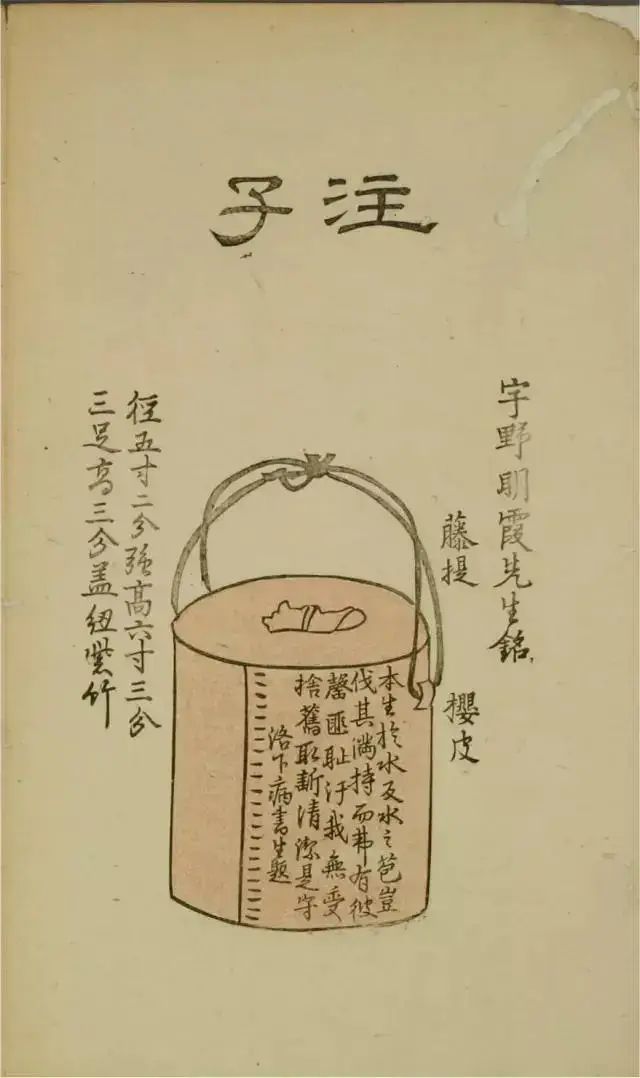 注子
宇野明霞先生銘
藤提
櫻皮
本生於水及水之苞豈
伐其滿持而弗有彼
罄匪恥汙我無受
捨舊取新清潔是守
洛下病書生題
徑五寸二分强高六寸三分
三足高三分盖紐紫竹